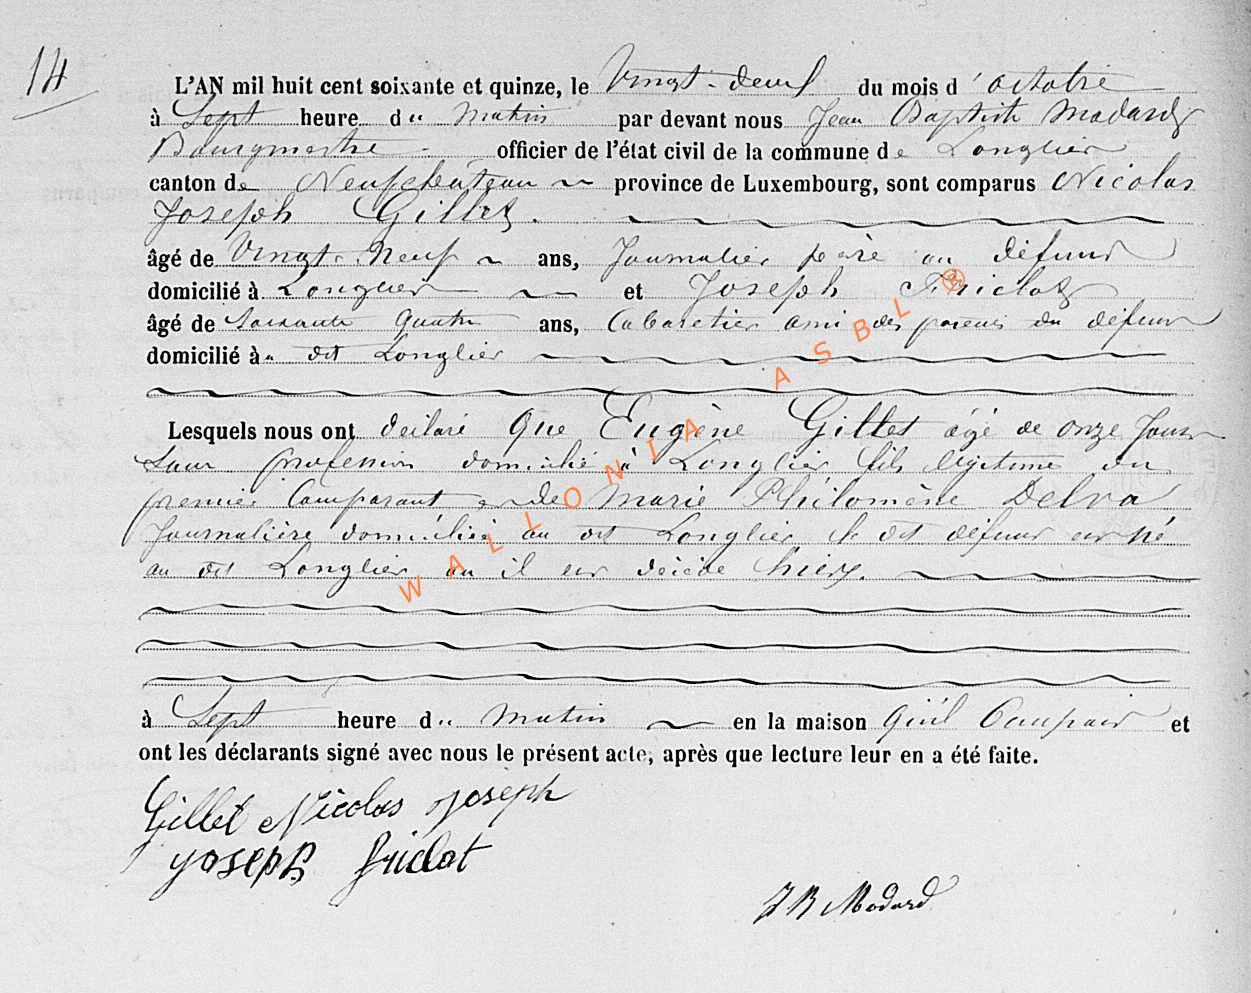 14
L'AN mil huit cent soixante et quinze, le Vingt-deux du mois d'octobre
à Sept heure du matin par devant nous Jean Baptiste Modard
Bourgmestre officier de l'état civil de la commune de Longlier
canton de Neufchâteau province de Luxembourg, sont comparus Nicolas
Joseph Gillet
âgé de Vingt-Neuf ans, Journalier père du défunt
domicilié à Longlier et Joseph Friclot
âgé de Soixante quatre ans, Cabaretier ami des parens du défunt
domicilié à dit Longlier
Lesquels nous ont déclaré que Eugène Gillet âgé de onze jours
sans profession domicilié à Longlier fils légitime du
premier Comparant et de Marie Philomène Delva
Journalière domiciliée au dit Longlier le dit défunt est né
au dit Longlier où il est décédé hier
à Sept heure du matin en la maison qu'il occupait et
ont les déclarants signé avec nous le présent acte, après que lecture leur en a été faite.
Gillet Nicolas Joseph
Joseph Friclot
J B Modard
WALLONIA ASBL ®